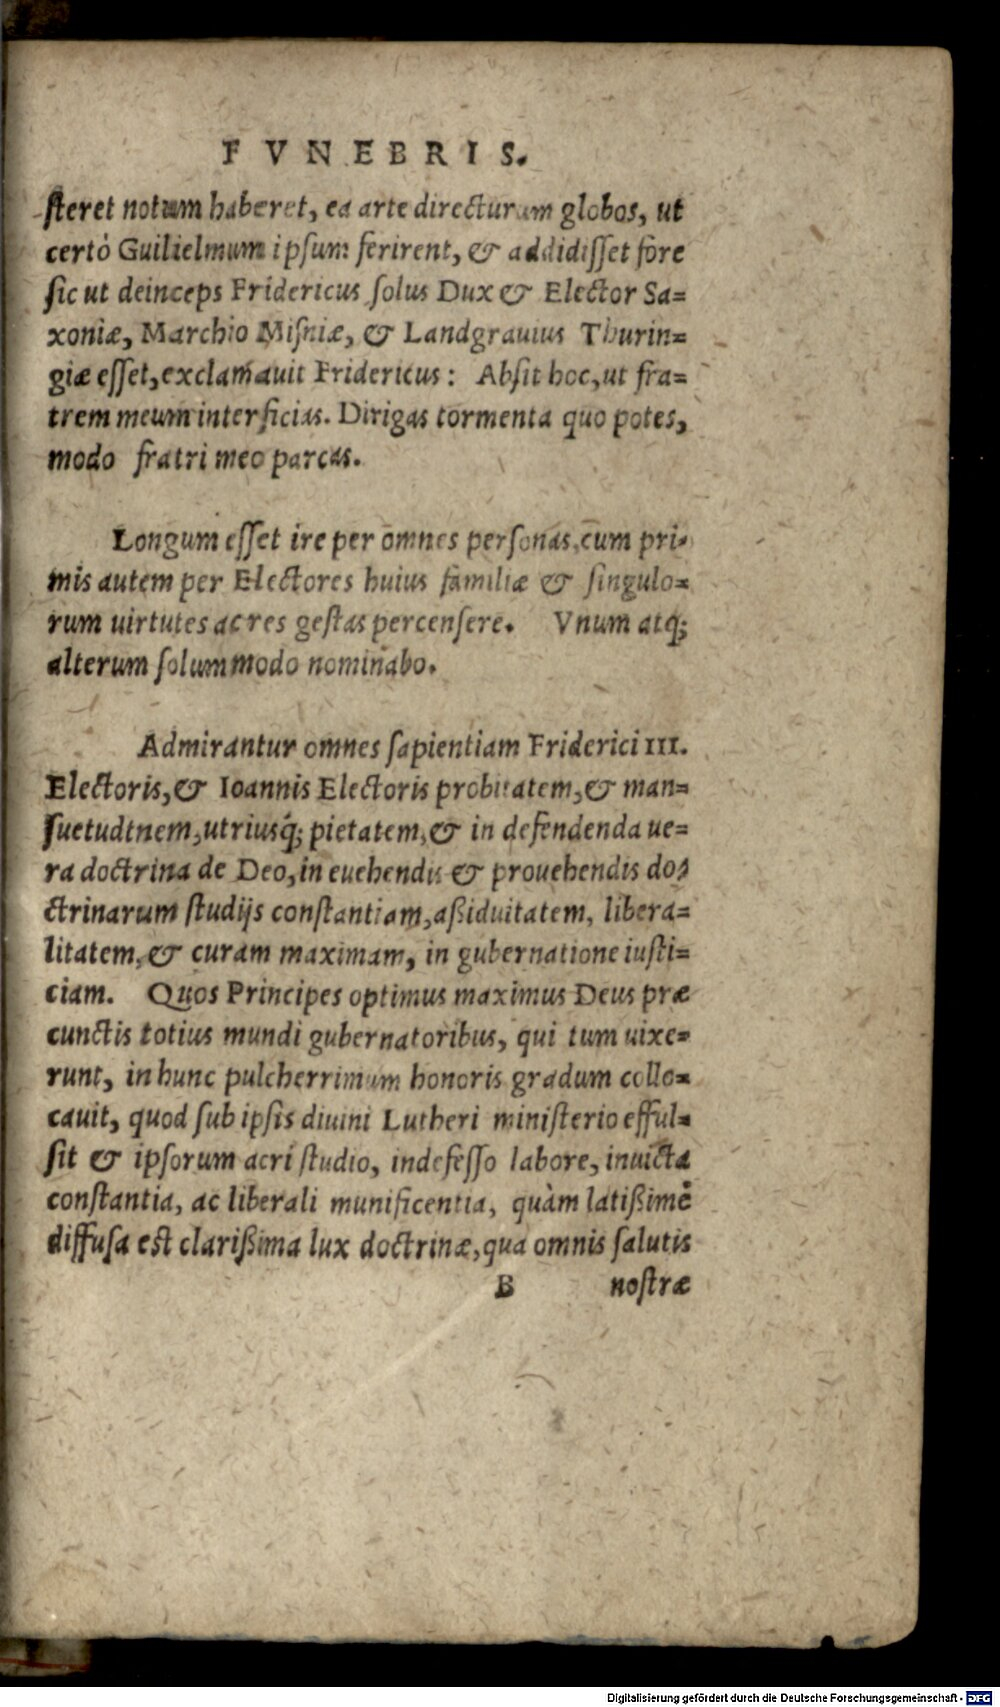 FVNEBRIS.
ſteret notum haberet, ea arte directuram globos, ut
certò Guilielmum ipſum ferirent, & addidiſſet fore
ſic ut deinceps Fridericus ſolus Dux & Elector Sa=
xoniæ, Marchio Miſniæ, & Landgrauius Thurin=
giæ eſſet, exclamauit Fridericus: Abſit hoc, ut fra=
trem meum interficias. Dirigas tormenta quo potes,
modo fratri meo parcas.
Longum eſſet ire per omnes perſonas, cum pri-
mis autem per Electores huius familiæ & ſingulo=
rum uirtutes ac res geſtas percenſere. Vnum atq́;
alterum ſolummodo nominabo.
Admirantur omnes ſapientiam Friderici III.
Electoris, & Ioannis Electoris probitatem, & man=
ſuetudtnem, utriusq́; pietatem, & in defendenda ue=
ra doctrina de Deo, in euehendis & prouehendis do=
ctrinarum ſtudijs conſtantiam, aßiduitatem, libera=
litatem, & curam maximam, in gubernatione iuſti=
ciam. Quos Principes optimus maximus Deus præ
cunctis totius mundi gubernatoribus, qui tum uixe=
runt, in hunc pulcherrimum honoris gradum collo=
cauit, quod ſub ipſis diuini Lutheri miniſterio efful=
ſit & ipſorum acri ſtudio, indefeſſo labore, inuicta
conſtantia, ac liberali munificentia, quàm latißimè
diffuſa eſt clarißima lux doctrinæ, qua omnis ſalutis
B noſtræ
Digitalisierung gefördert durch die Deutsche Forschungsgemeinschaft - DFG